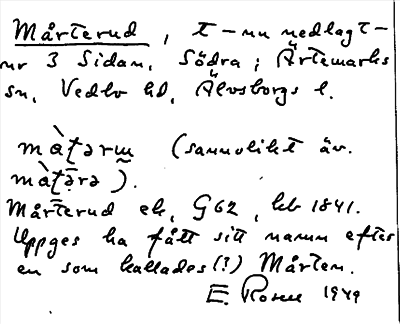 Mårterud, t – nu nedlagt –
nr 3 Sidan, Södra; Ärtemarks
sn, Vedbo hd, Älvsborgs l.
màʈərɯ̰ (sannolikt äv.
màʈərə).
Mårterud ek, G62, hb 1841.
Uppges ha fått sitt namn efter
en som kallades (?) Mårten.
E. Rosell 1949